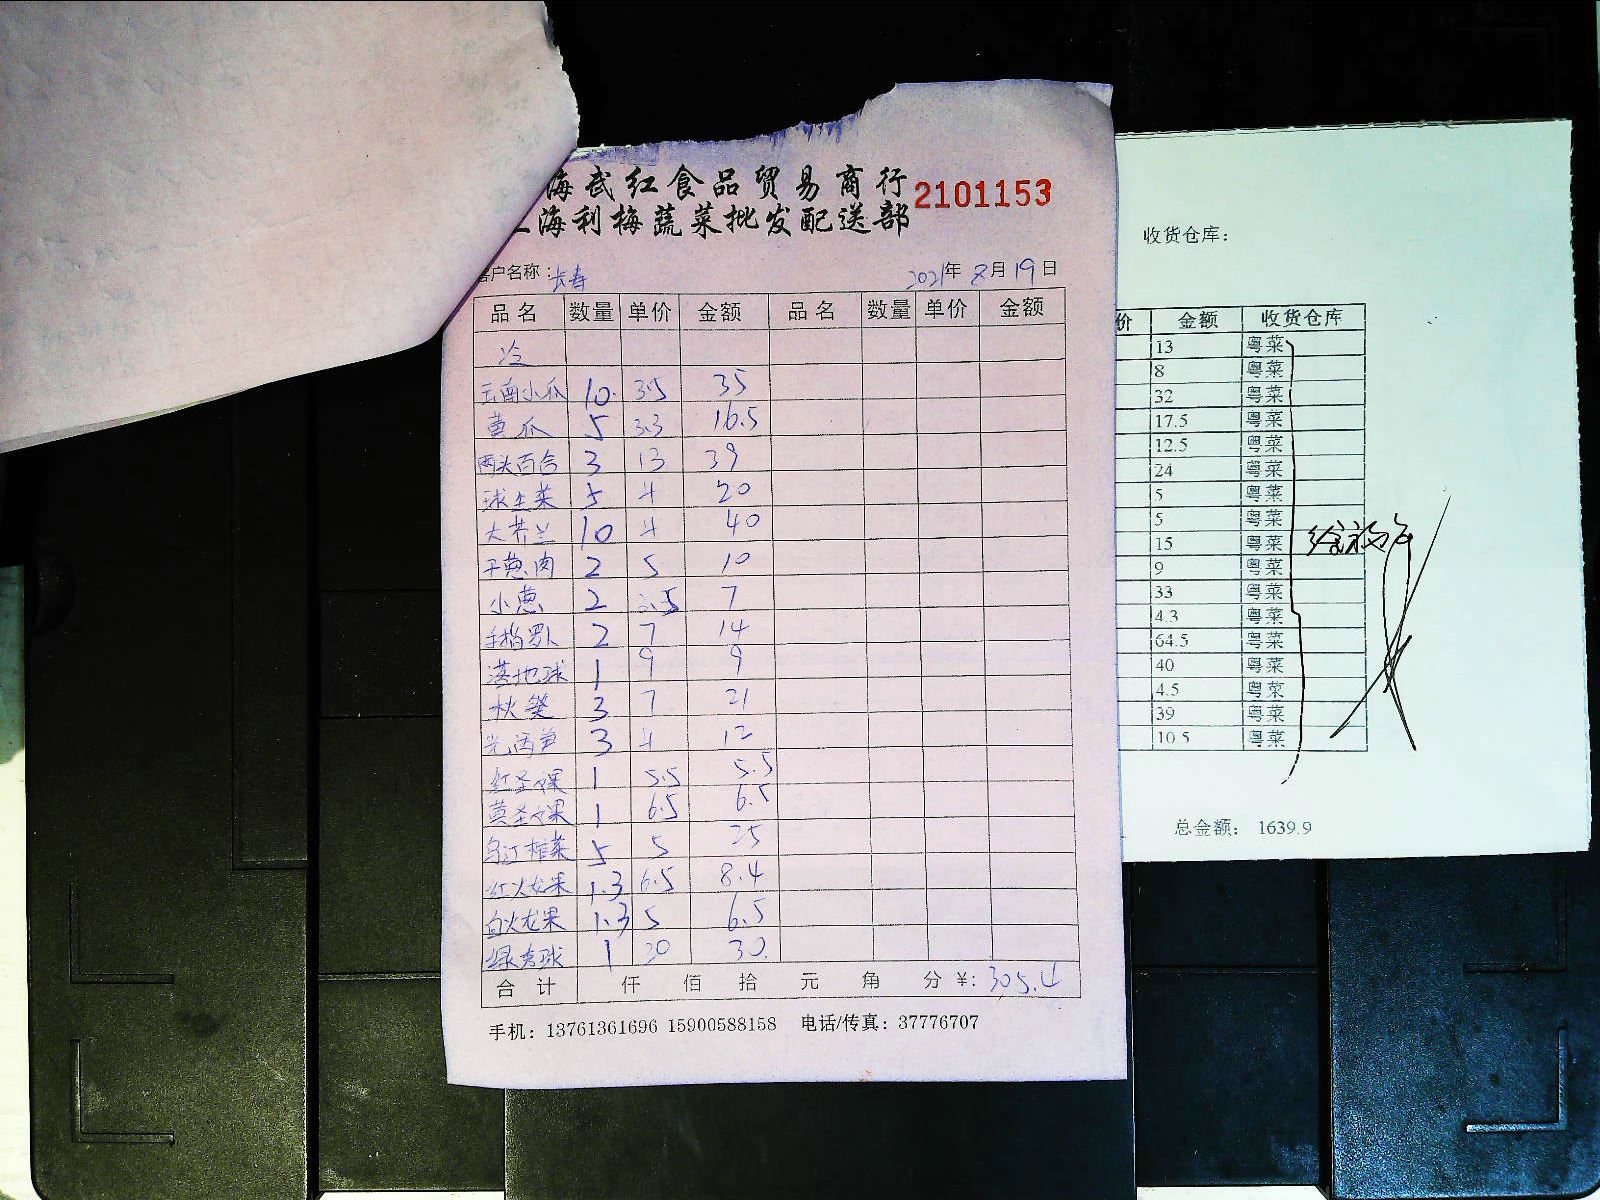 海武红食品贸易商行
海利梅蔬菜批发配送部 2101153
户名称：长寿 2021年8月19日
品名 数量 单价 金额 品名 数量 单价 金额
冷
云南小瓜 10 3.5 35
黄瓜 5 3.3 16.5
两头百合 3 13 39
球生菜 5 4 20
大芥兰 10 4 40
干葱肉 2 5 10
小葱 2 3.5 7
2 7 14
满地球 1 9 9
秋葵 3 7 21
光莴笋 3 4 12
红圣女果 1 5.5 5.5
黄圣女果 1 6.5 6.5
乌江榨菜 5 5 25
红火龙果 1.3 6.5 8.4
白火龙果 1.3 5 6.5
绿秀球 1 30 30
合计 仟 佰 拾 元 角 分 ¥: 305.4
手机：13761361696 15900588158 电话/传真：37776707
收货仓库：
价 金额 收货仓库
13 粤菜
8 粤菜
32 粤菜
17.5 粤菜
12.5 粤菜
24 粤菜
5 粤菜
5 粤菜
15 粤菜
9 粤菜
33 粤菜
4.3 粤菜
64.5 粤菜
40 粤菜
4.5 粤菜
39 粤菜
10.5 粤菜
总金额： 1639.9